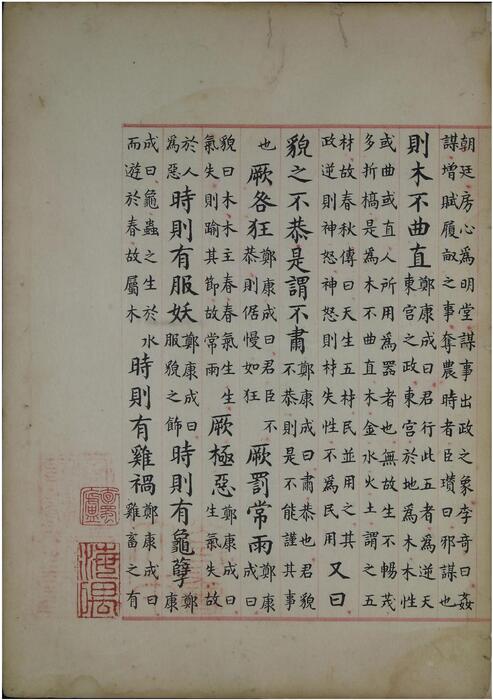 朝廷房心為明堂謀事出政之象李奇曰姦
謀增賦履畝之事奪農時者臣瓚曰邪謀也
則木不曲直
鄭康成曰君行此五者為逆天
東宮之政東宮於地為木木性
或曲或直人所用為器者也無故生不暢茂
多折槁是為木不曲直木金水火土謂之五
材故春秋傳曰天生五材民並用之其
政逆則神怒神怒則材失性不為民用
又曰
貌之不恭是謂不肅
鄭康成曰肅恭也君貌
不恭則是不能謹其事
也
厥咎狂
鄭康成曰君臣不
恭則倨慢如狂
厥罰常雨
鄭康
成曰
貌曰木木主春春氣生生
氣失則踰其節故常雨
厥極惡
鄭康成曰
生氣失故
於人
為惡
時則有服妖
鄭康成曰
服貌之飾
時則有龜孽
鄭
康
成曰龜蟲之生於水
而遊於春故屬木
時則有雞禍
鄭康成曰
雞畜之有